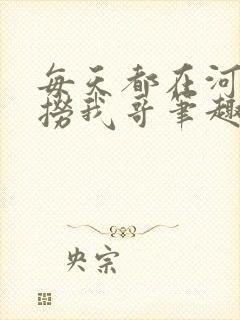 每天都在河
捞我哥笔趣
央宗